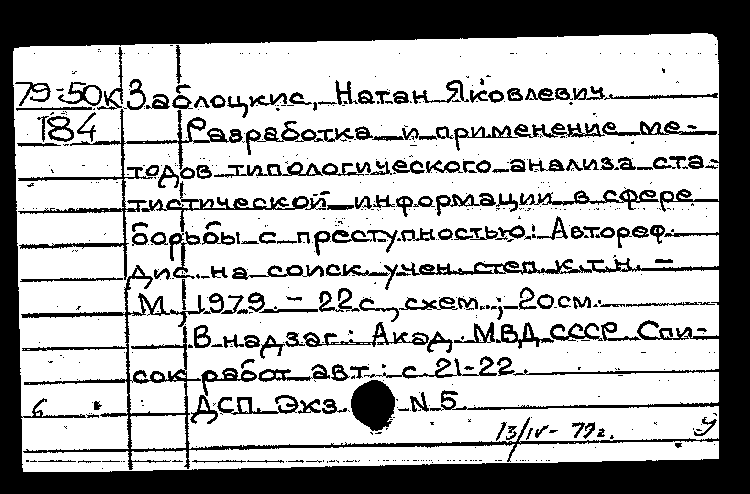 79-50к Заблоцкис, Натан Яковлевич.
184 Разработка и применение ме-
тодов типологического анализа ста-
тистической информации в сфере
борьбы с преступностью: Автореф.
дис. на соиск. учен. степ. к.т.н. –
М., 1979. – 22с., схем.; 20см.
В надзаг.: Акад. МВД СССР. Спи-
сок работ авт.: с. 21-22.
6 ДСП. Экз. N 5
13/IV – 79г. У